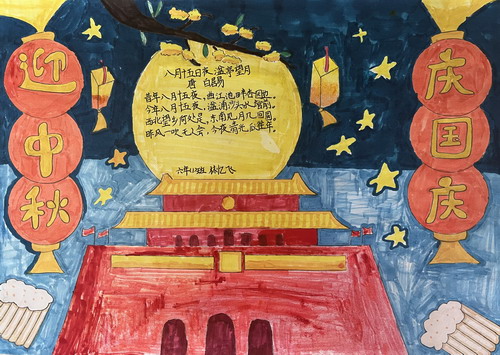 迎中秋
八月十五日夜,湓亭望月
唐 白居易
昔年八月十五夜,曲江池畔杏园边
今年八月十五夜,湓浦沙头水馆前,
西北望乡何处是,东南见月几回圆
昨风一吹无人会,今夜清光似往年.
林忆飞
庆国庆